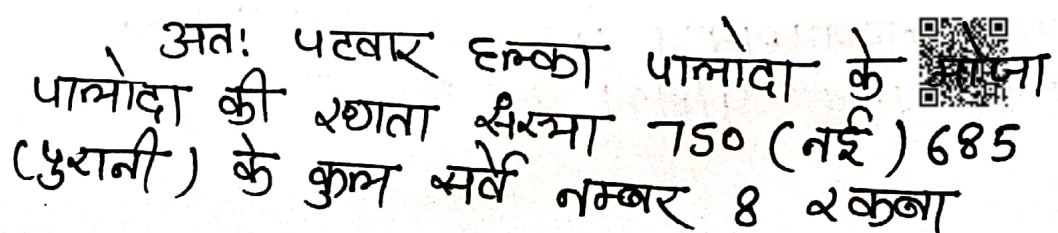 अतः पटवार हल्का पालोदा के मौजा
पालोदा की खाता संख्या 750 (नई) 685
(पुरानी) के कुल सर्वे नम्बर 8 रकबा